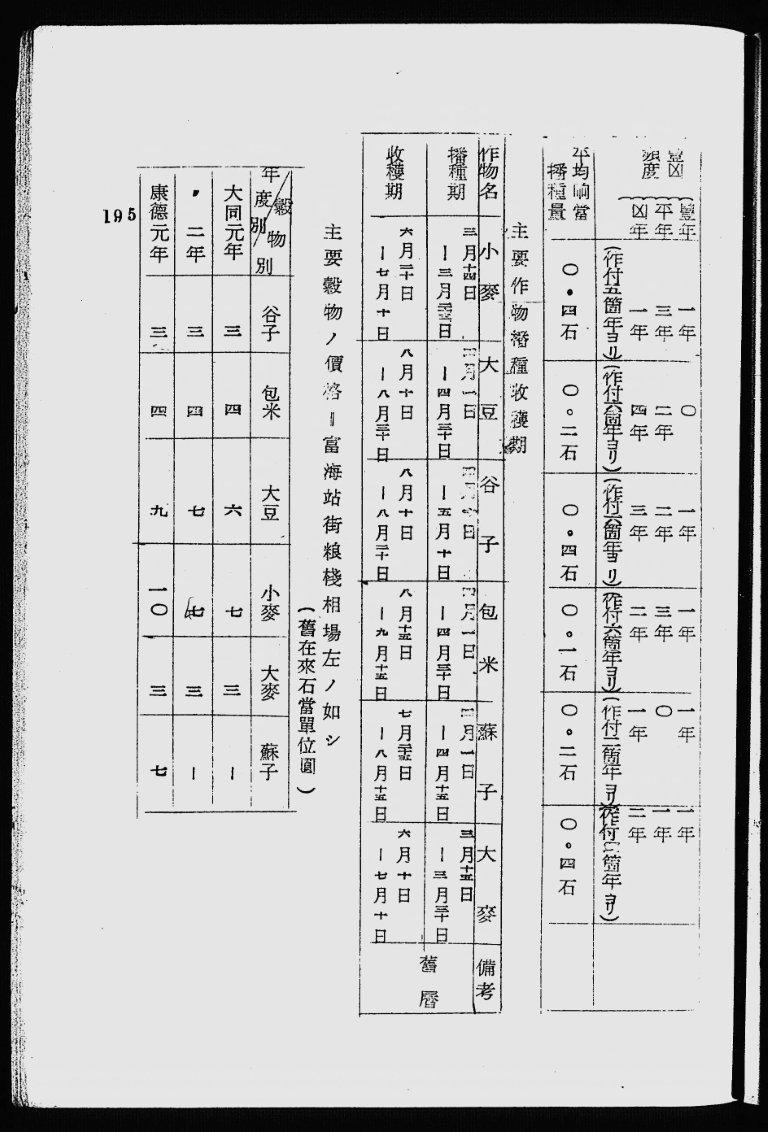 豐凶 豐年 一年 〇 一年 一年 一年 一年
程度 平年 三年 二年 二年 三年 〇 一年
凶年 一年 四年 三年 二年 一年 二年
(作付五箇年ヨリ) (作付六箇年ヨリ) (作付六箇年ヨリ) (作付六箇年ヨリ) (作付二箇年ヨリ) (作付 箇年ヨリ)
平均晌當播種量 〇・四石 〇・二石 〇・四石 〇・一石 〇・二石 〇・四石
主要作物播種收穫期
作物名 小麥 大豆 谷子 包米 蘇子 大麥 備考
播種期 三月十四日ー三月二十五日 月一日ー四月二十日 日ー五月十日 月一日ー四月三十日 月一日ー四月十五日 三月十五日ー三月三十日 舊曆
收穫期 六月二十日ー七月十日 八月十日ー八月三十日 八月十日ー八月二十日 八月十五日ー九月十五日 七月二十五日ー八月十五日 六月十日ー七月十日
主要穀物ノ價格ー富海站街粮棧相場左ノ如シ
(舊在來石當單位圓)
年度別/穀物別 谷子 包米 大豆 小麥 大麥 蘇子
大同元年 三 四 六 七 三 ー
〃二年 三 四 七 七 三 ー
康德元年 三 四 九 一〇 三 七
195